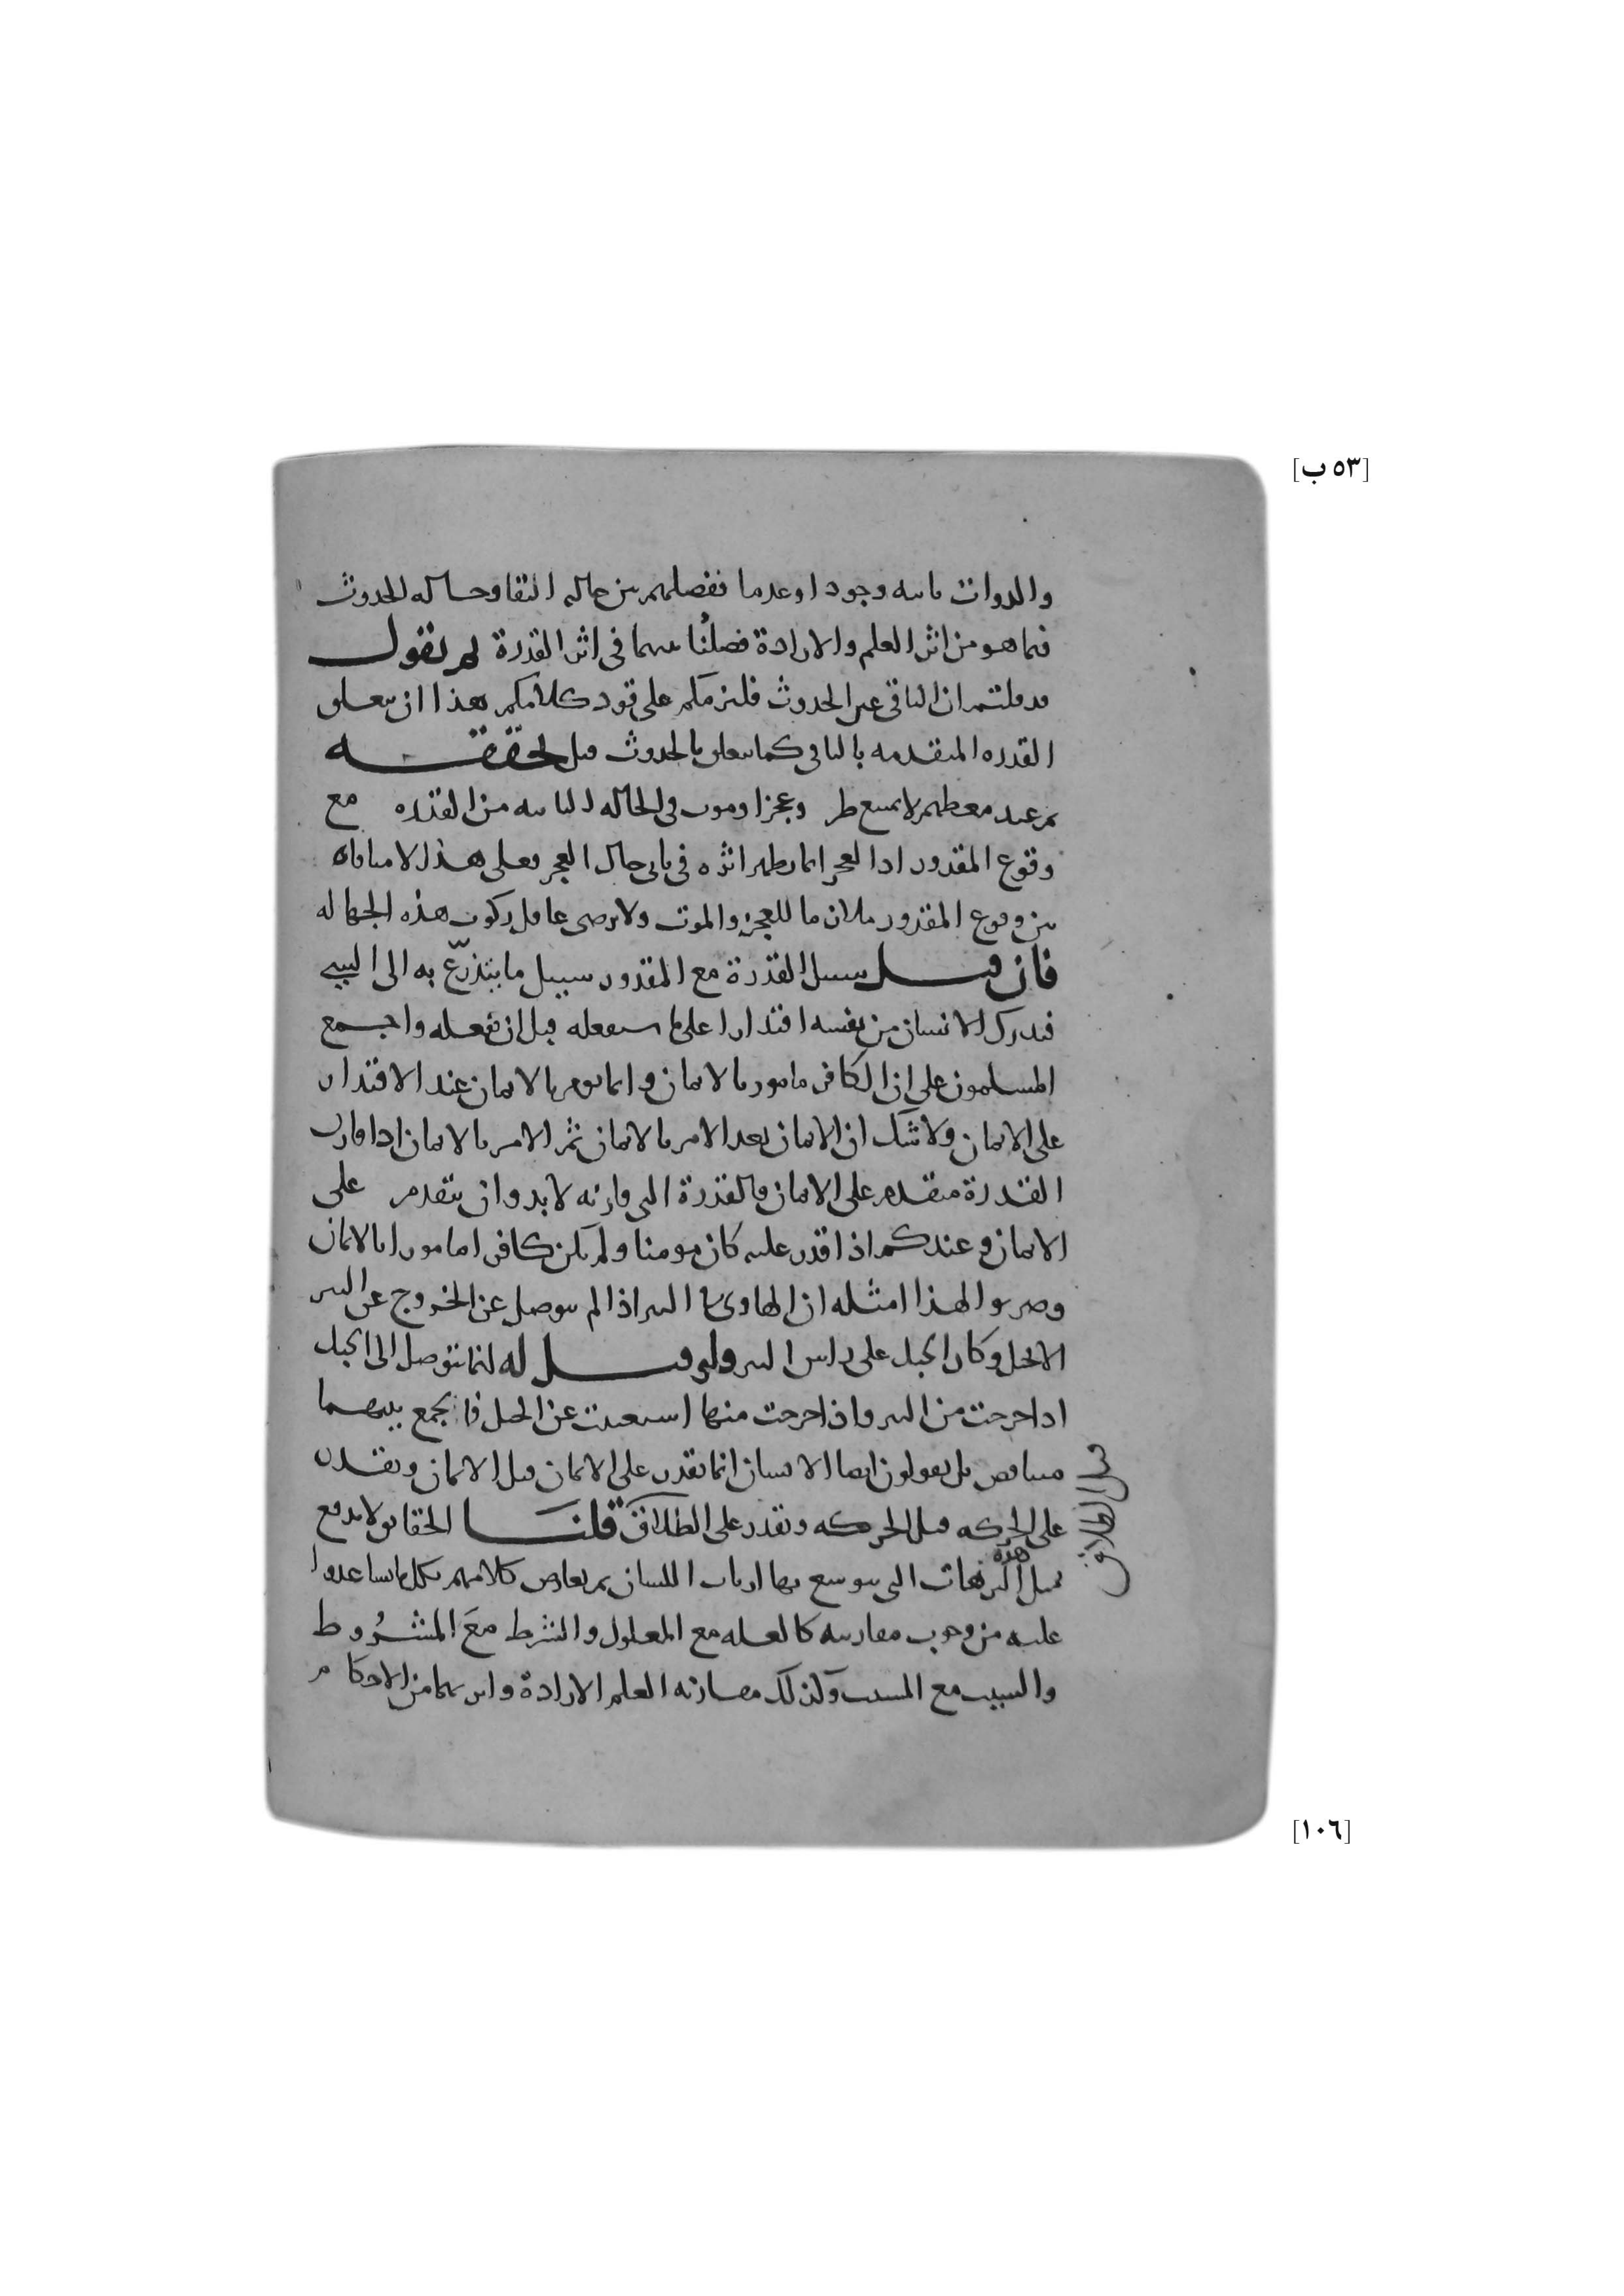 [٥٣ ب]
والدوات ثابته وجودا وعدما ففصلهم بين حالة البقا وحاله الحدوث
فيما هو من اثر العلم والارادة فصلنا بينهما في اثر القدرة ثم نقول
قد قلتم ان الباقي غير الحدوث فلنزمكم على قود كلامكم هذا ان يتعلق
القدره المتقدمه بالباقي كما يتعلق بالحدوث قبل تحققه
ثم عند معظمهم لا يمتنع طر وعجز او موت في الحاله الثانيه من القدره مع
وقوع المقدور اذا العجز انما يظهر اثره في ثاني حال العجز فعلى هذا لا منافاة
بين وقوع المقدور ملازما للعجز والموت ولا يرضى عاقل بركوب هذه الجهاله
فان قيل سبيل القدرة مع المقدور سبيل ما يتذرّع به الى الشيء
فيدرك الانسان من نفسه اقتدارا على ما سيفعله قبل ان يفعله واجمع
المسلمون على ان الكافر مامور بالايمان وانما يومر بالايمان عند الاقتدار
على الايمان ولا شك ان الايمان بعد الامر بالايمان ثم الامر بالايمان اذا قارن
القدرة متقدم على الايمان فالقدرة التي قارنه لا بد وان يتقدم على
الايمان وعندكم اذا قدر عليه كان مومنا ولم يكن كافرا مامورا بالايمان
وضربوا لهذا امثله ان الهاوي في البير اذا لم يتوصل عن الخروج عن البير
الا بحبل وكان الحبل على راس البير ولو قيل له انما تتوصل الى الحبل
اذا خرجت من البير واذا خرجت منها استغنيت عن الحبل فالجمع بينهما
متناقض بل يقولون ايضا الانسان انما يقدر على الايمان قبل الايمان ويقدر
على الحركه قبل الحركه ويقدر على الطلاق قبل الطلاق قلنا الحقايق لا تدفع
بمثل هذه الترهات التي يتوسع بها ارباب اللسان ثم يعارض كلامهم بكل ما ساعدوا
عليه من وجوب مقارنته كالعله مع المعلول والشرط مع المشروط
والسبب مع المسبب وكذلك مقارنه العلم الارادة واثريهما من الاحكام
[١٠٦]